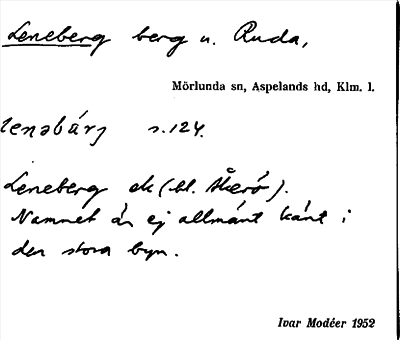 Leneberg berg u. Ruda,
Mörlunda sn, Aspelands hd, Klm. l.
lenəbárj s. 124.
Leneberg ek (bl. Åkerö).
Namnet är ej allmänt känt i
den stora byn.
Ivar Modéer 1952